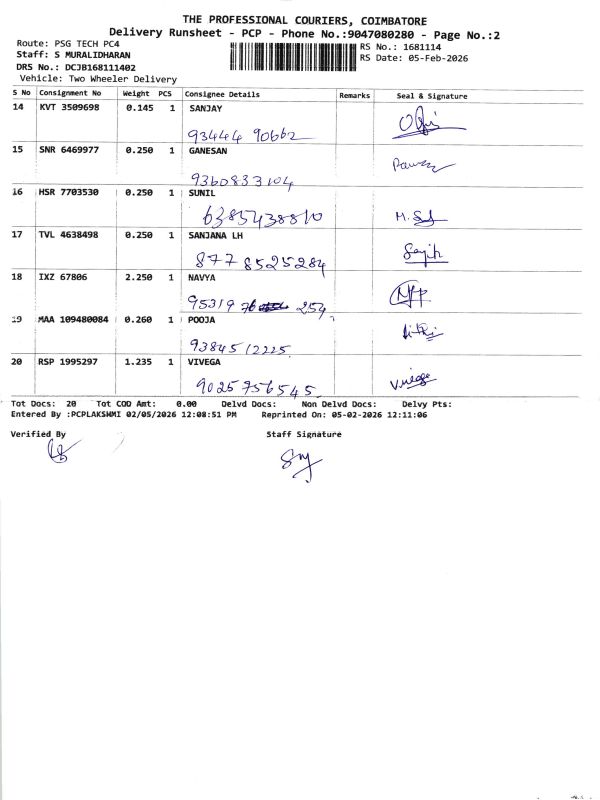 THE PROFESSIONAL COURIERS, COIMBATORE
Delivery Runsheet - PCP - Phone No.:9047080280 - Page No.:2
Route: PSG TECH PC4
Staff: S MURALIDHARAN
DRS No.: DCJB168111402
Vehicle: Two Wheeler Delivery
RS No.: 1681114
RS Date: 05-Feb-2026
S No Consignment No Weight PCS Consignee Details Remarks Seal & Signature
14 KVT 3509698 0.145 1 SANJAY
93444 90662
15 SNR 6469977 0.250 1 GANESAN
9360833104
16 HSR 7703530 0.250 1 SUNIL
6385438810 M.S
17 TVL 4638498 0.250 1 SANJANA LH
877 8525284
18 IXZ 67806 2.250 1 NAVYA
95319 76 254
19 MAA 109480084 0.260 1 POOJA
93845 12225
20 RSP 1995297 1.235 1 VIVEGA
9025756545 Vivega
Tot Docs: 20 Tot COD Amt: 0.00 Delvd Docs: Non Delvd Docs: Delvy Pts:
Entered By :PCPLAKSHMI 02/05/2026 12:08:51 PM Reprinted On: 05-02-2026 12:11:06
Verified By Staff Signature